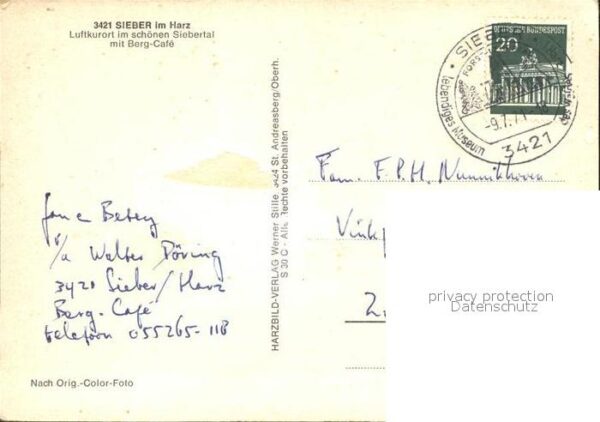 3421 SIEBER im Harz
Luftkurort im schönen Siebertal
mit Berg-Café
DEUTSCHE BUNDESPOST
20
SIEB
lebendiges Museum
-9.7.71-
3421
HARZBILD-VERLAG Werner Stille, 3424 St. Andreasberg/Oberh.
S 30 C - Alle Rechte vorbehalten
Fam. F.P.H.
Jan
p/a Walter Döring
3421 Sieber/Harz
Berg-Café
telefoon 055265-118
privacy protection
Datenschutz
Nach Orig.-Color-Foto